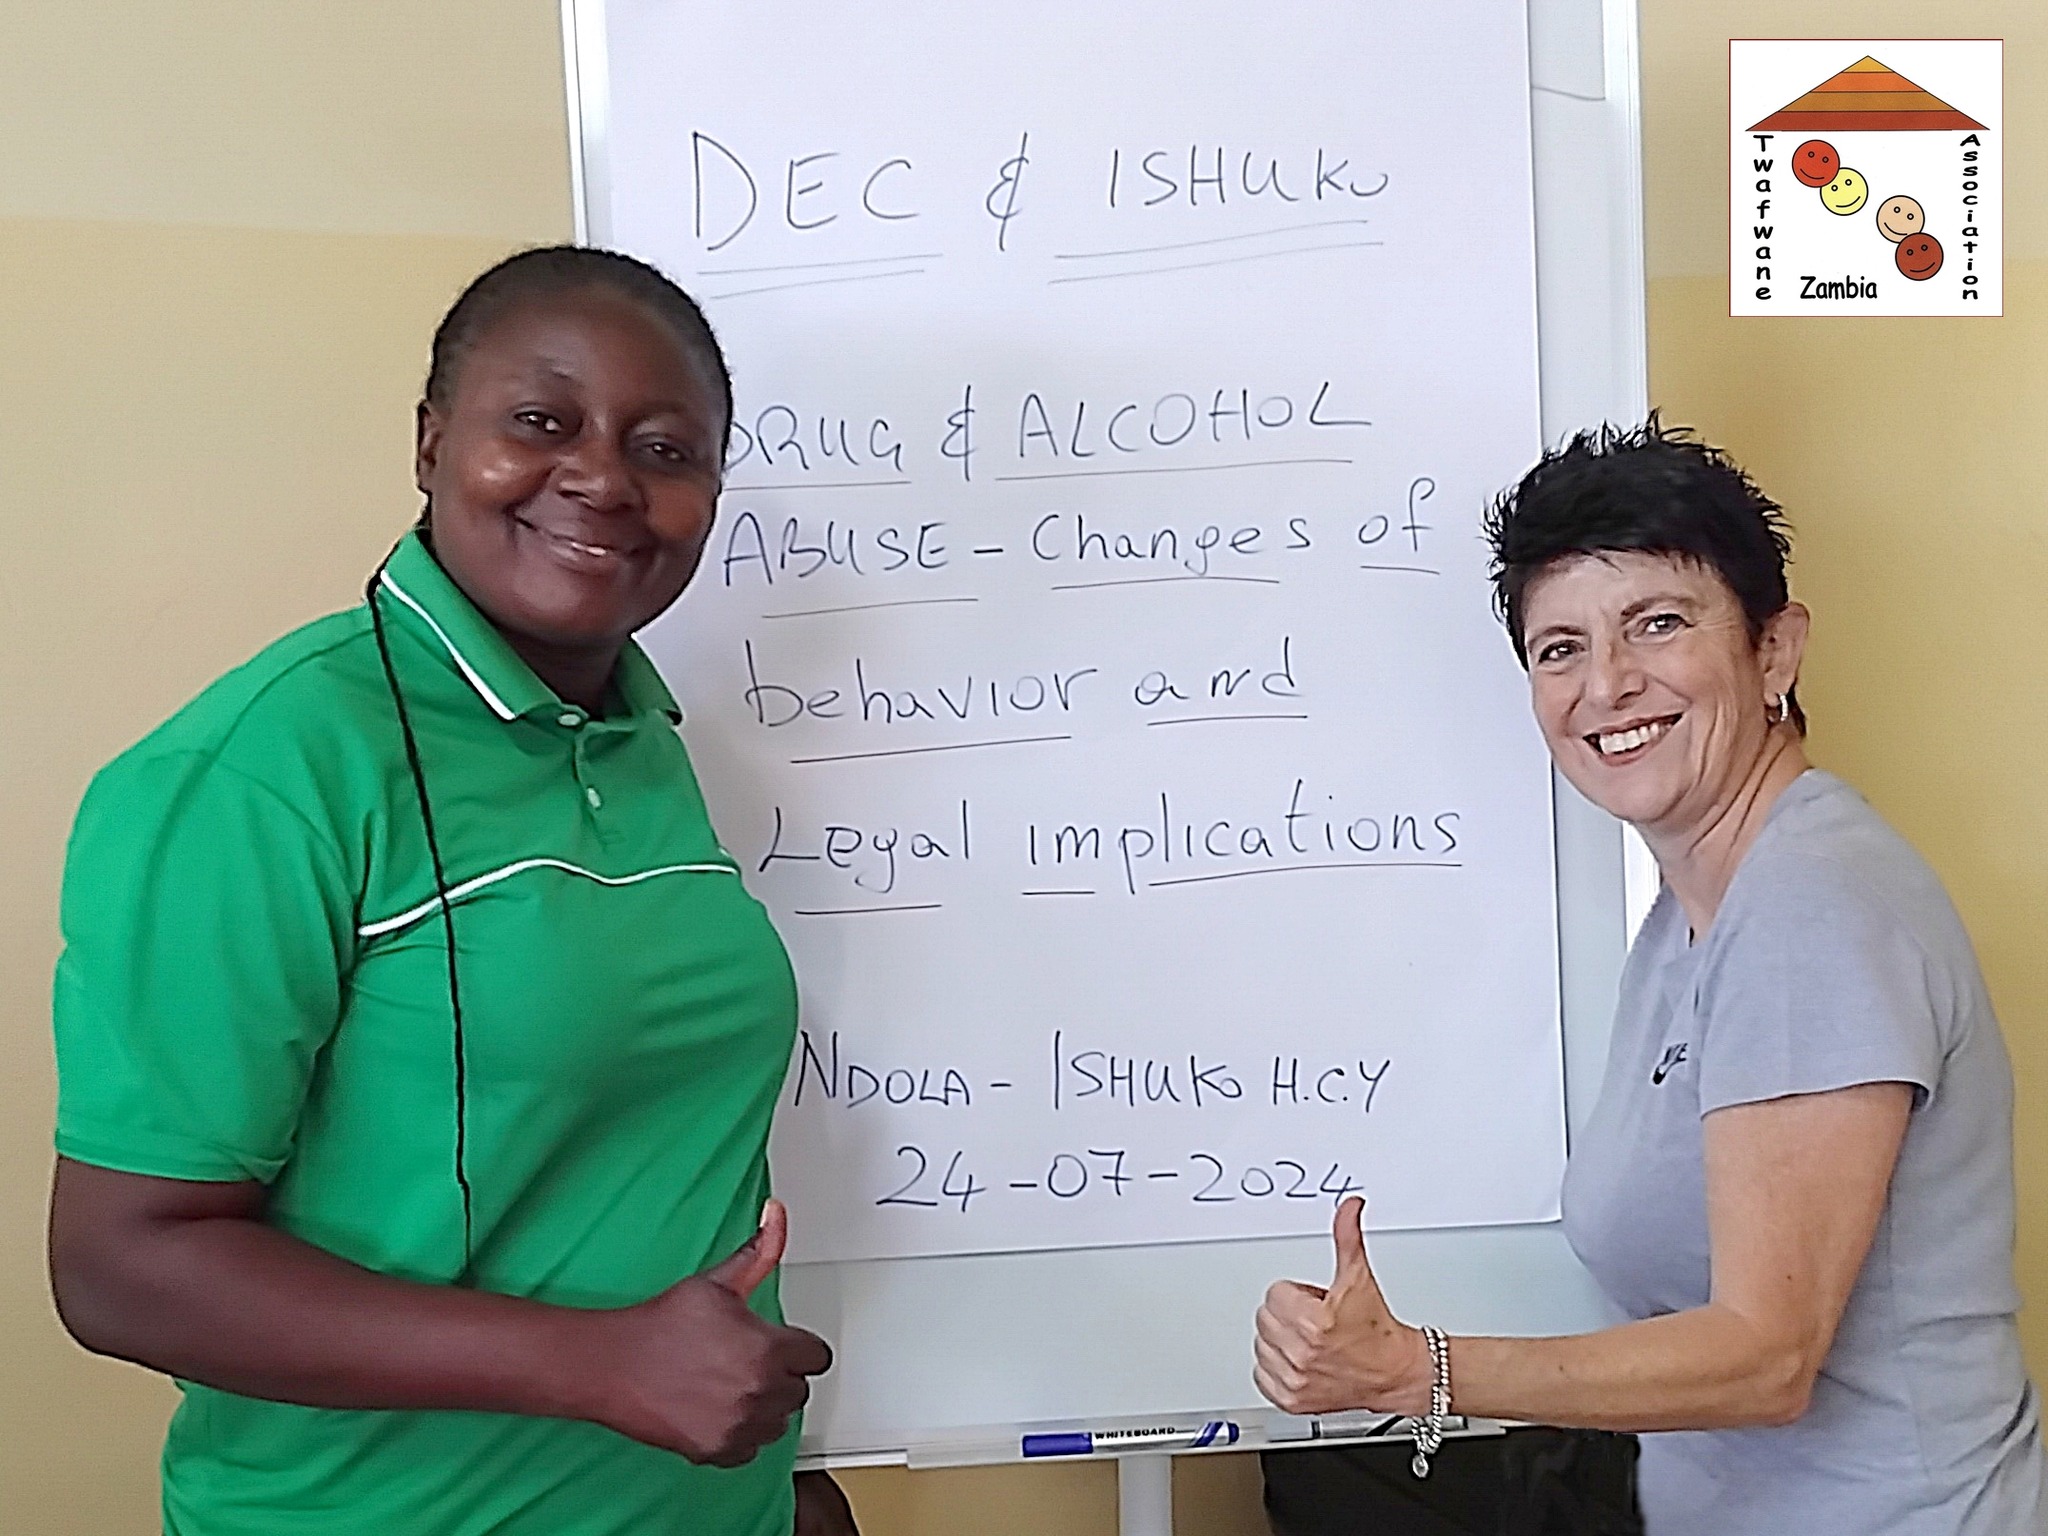 DEC & ISHUKO
DRUG & ALCOHOL
ABUSE - Changes of
behavior and
Legal implications
NDOLA - ISHUKO H.C.Y
24-07-2024
WHITEBOARD
NIKE
Twafwane
Association
Zambia